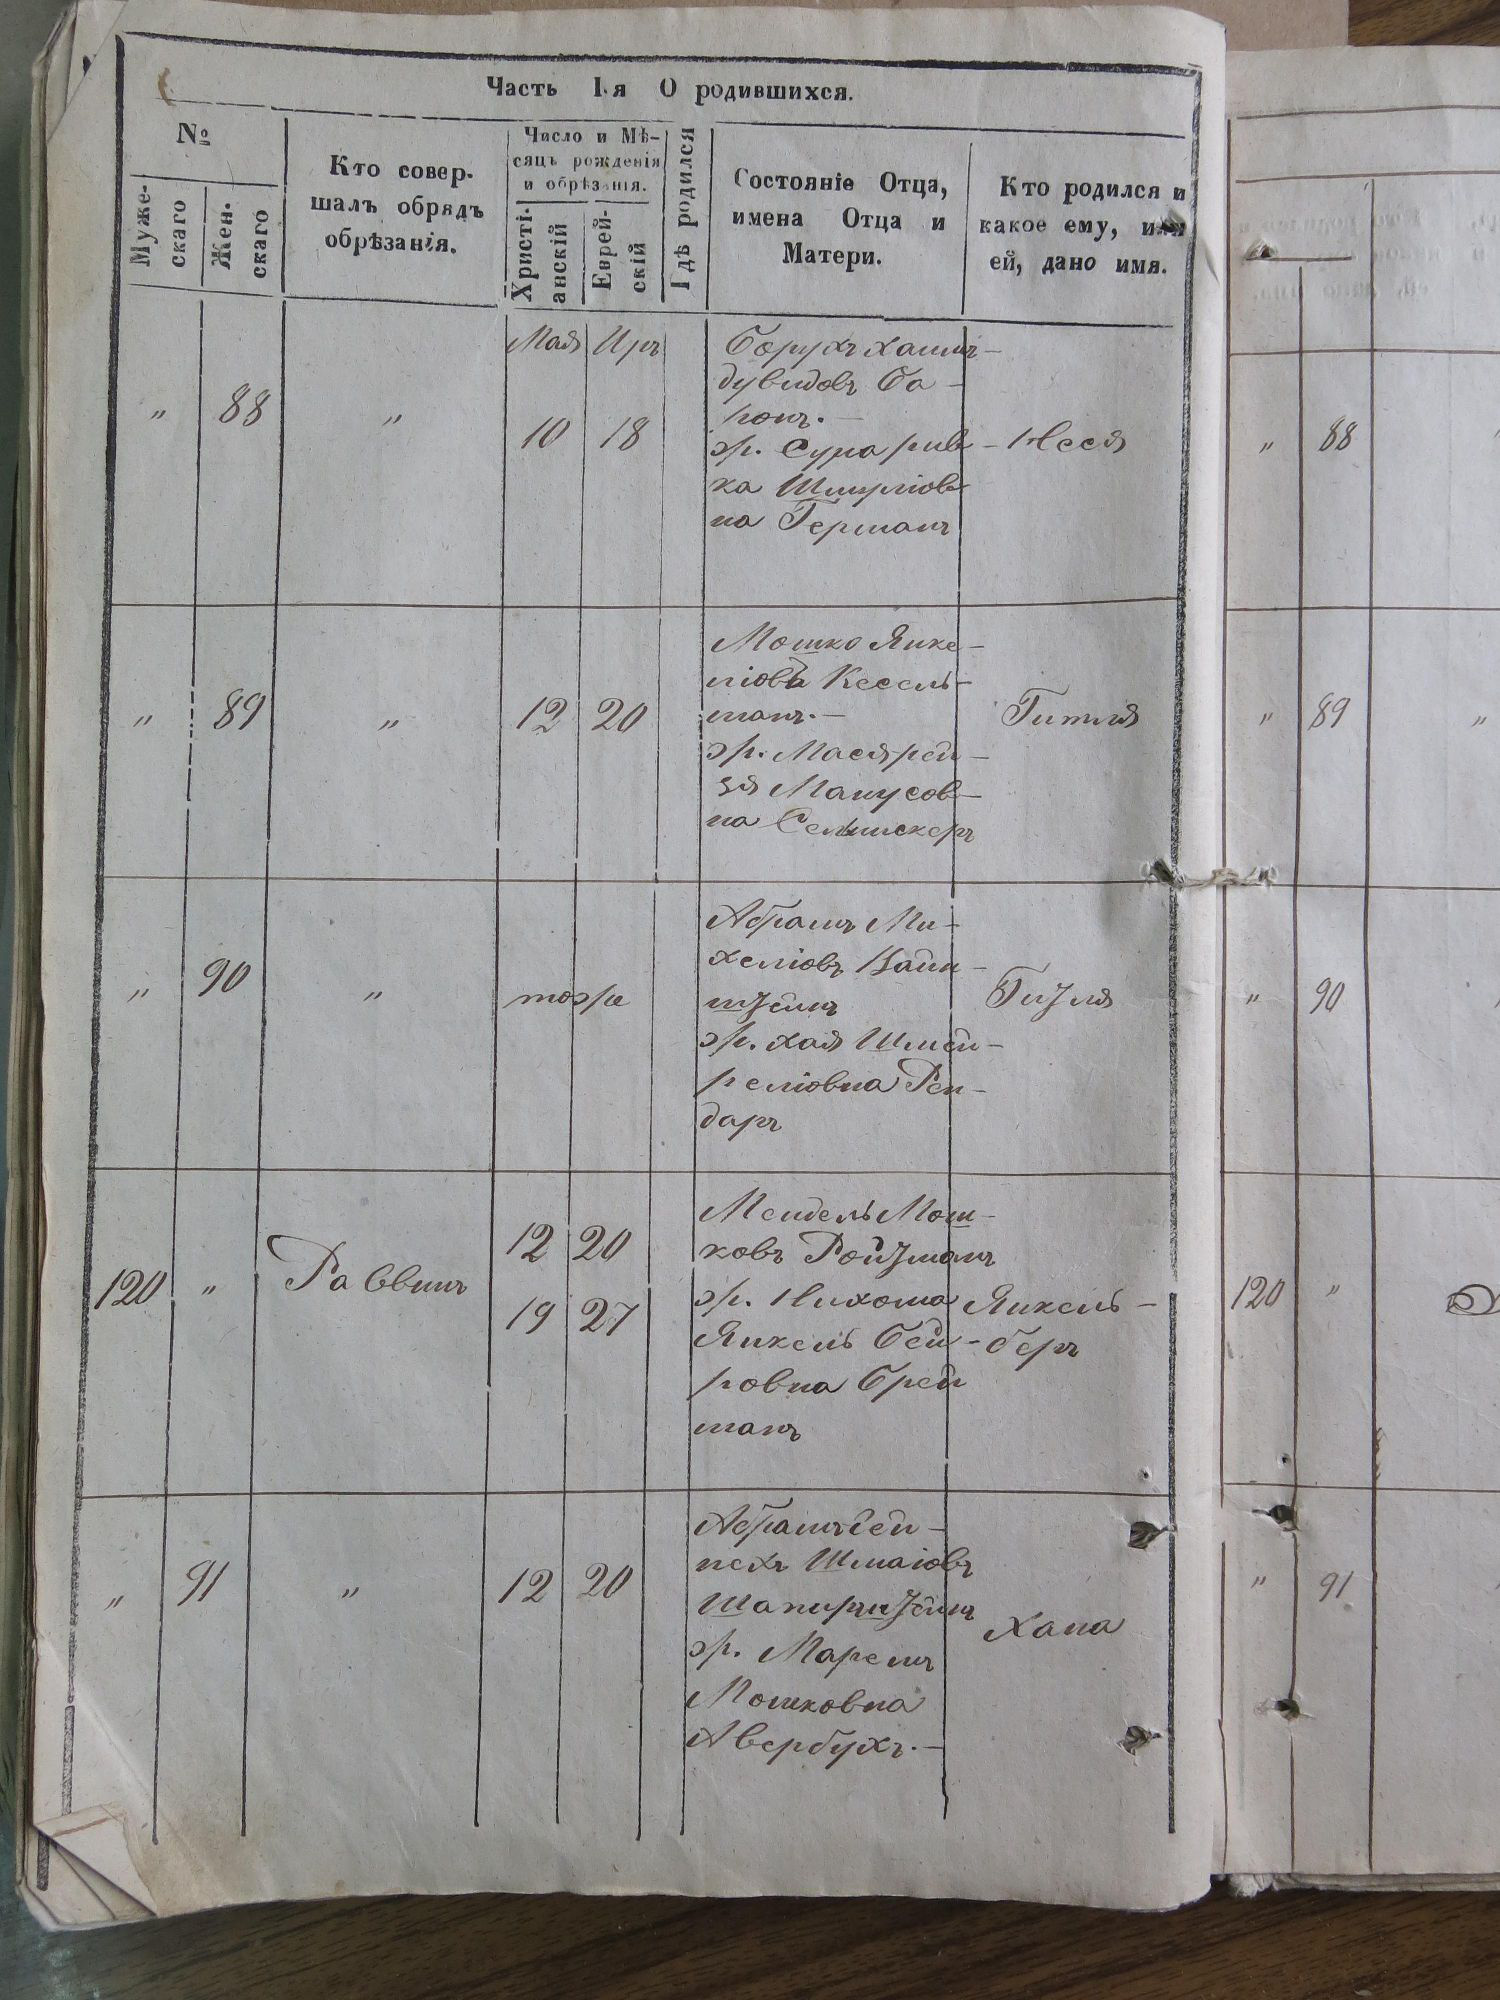 Часть I-я О родившихся.
№
Муже-
скаго
Жен-
скаго
Кто совер-
шалъ обрядъ
обрѣзанія.
Число и Мѣ-
сяцъ рожденія
и обрѣзанія.
Христі-
анскій
Еврей-
скій
Гдѣ родился
Состояніе Отца,
имена Отца и
Матери.
Кто родился и
какое ему, или
ей, дано имя.
Мая Иръ
" 88 " 10 18
Борухъ Хаимъ-
дувидовъ Ба-
ронъ.-
ж. Сура рив-
ка Шмуліов-
на Германъ
Неся
" 89 " 12 20
Мошко Янке-
ліовъ Кесель-
манъ.-
ж. Мася рей-
зя Манусов-
на
Гитля
" 90 " тоже
Абрамъ Ми-
хеліовъ Вайн-
штейнъ
ж. Хая Шмей-
реліовна Рен-
даръ
Гитля
120 " Раввинъ
12 20
19 27
Мендель Мош-
ковъ Ройтманъ
ж. Нихома
Янкель бей-
ровна Брей
манъ
Янкель-
беръ
" 91 " 12 20
Абрамъ бей-
нехъ Шмаіовъ
Шапирштейнъ
ж. Маремъ
Мошковна
Авербухъ.-
Хана
" 88
" 89 "
" 90
120 "
" 91